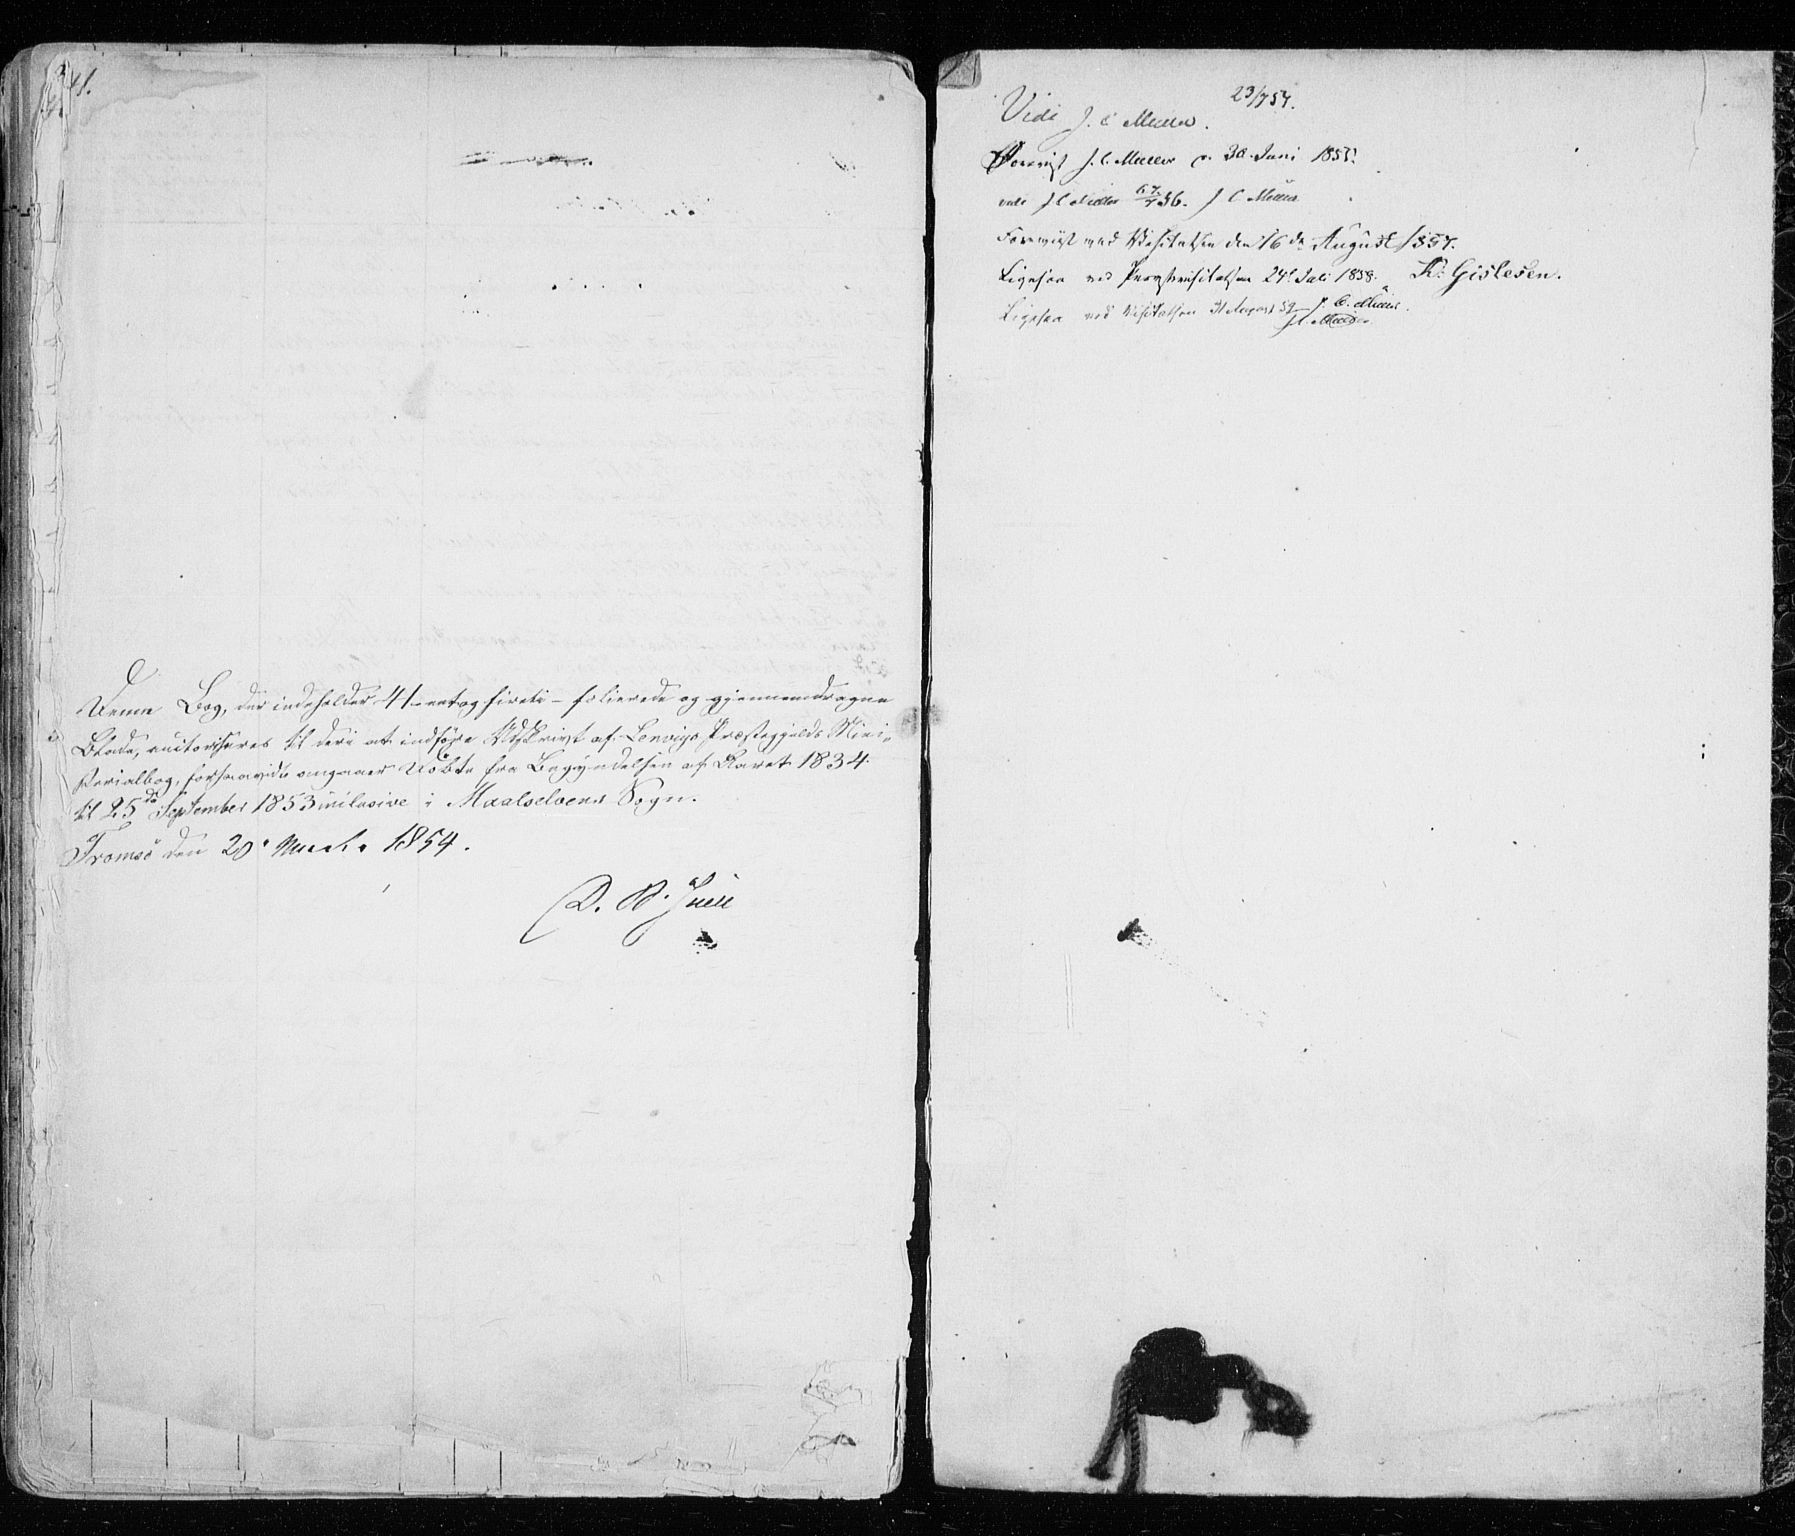 41.
Denne Bog, der indeholder 41 - een og fireti - folierede og gjennemdragne
Blade, autoriseres til deri at indføre Udskrivt af Lenvigs Præstegjelds Mini-
sterialbog, forsaavidt angaaer Døbte fra Begyndelsen af Aaret 1834
til 25de September 1853 inclusive i Maalselvens Sogn.
Tromsø den 20. Marts 1854.
D. B. Juell
23/7 54.
Vidi J. C. Müller.
Forevist J. C. Müller d. 30 Juni 1855.
vidi J C Müller 56. J C Müller
Forevist ved Visitatsen den 16de August 1857.
K. Gislesen.
Ligesaa ved Provstevisitatsen 24. Juli 1858. J. C. Müller.
Ligesaa ved Visitatsen 31 August 59 J. C. Müller.